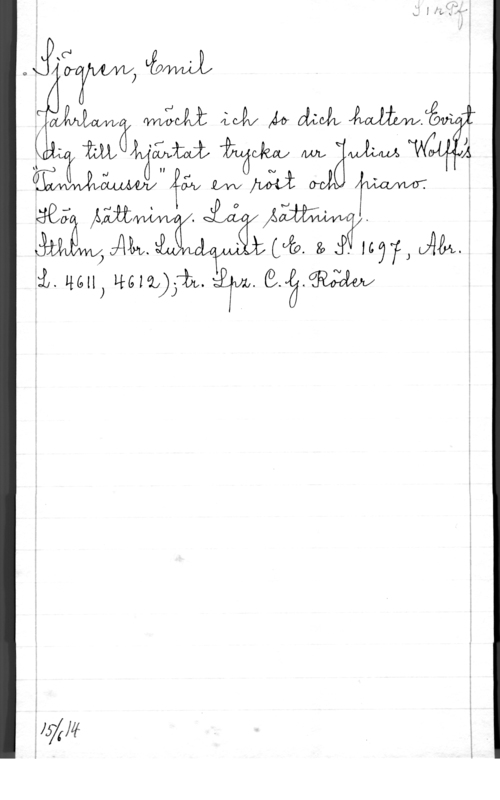 SinPf
Sjögren, Emil
Jahrlang möcht ich so dich halten. Evigt
dig till hjärtat trycka ur Julius Wolff's
"Tannhäuser" för en röst och piano.
Hög sättning. Låg sättning.
Sthlm, Abr. Lundquist (E. & S. 1697, Abr.
L. 4611, 4612); tr. Lpz. C. G. Röder
15/6 14